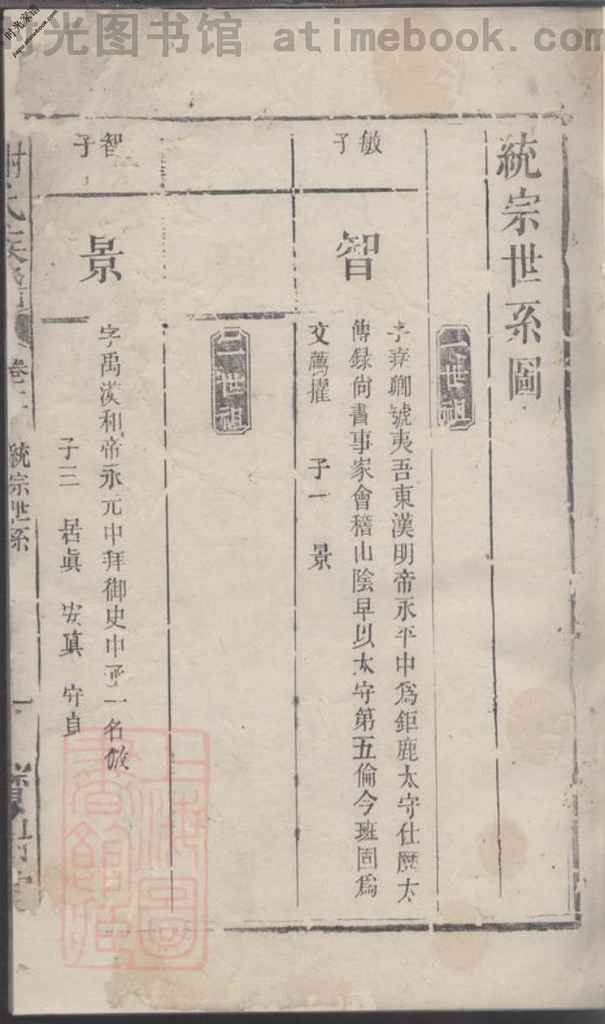 时光图书馆 atimebook.com
统宗世系圖
一世祖
敏子
智
字堯卿號夷吾東漢明帝永平中爲鉅鹿太守仕歴太
傅録尙書事家會稽山陰早以太守第五倫令班固爲
文薦擢 子一 景
二世祖
智子
景
字禹漢和帝永元中拜御史中丞一名敬
子三 居眞 安眞 守貞
謝氏族譜 卷 統宗世系 一
上海圖書館藏